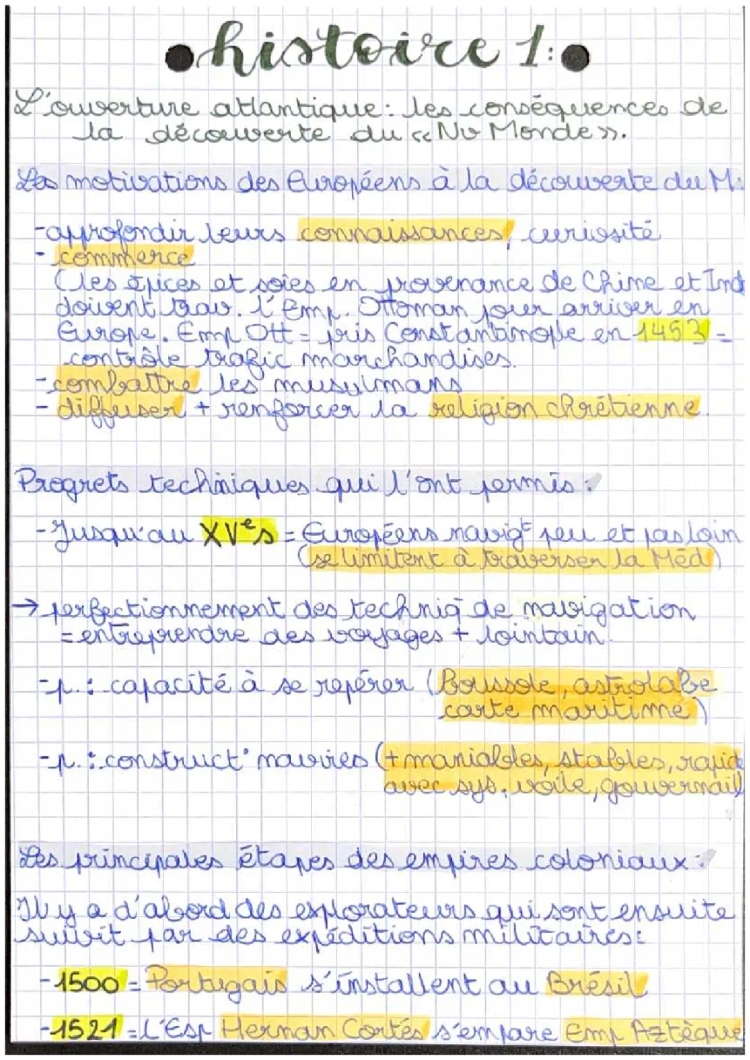 histoire 1:
L'ouverture atlantique: les conséquences de
la découverte du «Nv Monde».
Les motivations des Européens à la découverte du M:
-approfondir leurs connaissances, curiosité
- commerce
(les épices et soies en provenance de Chine et Ind
doivent trav. l'Emp. Ottoman pour arriver en
Europe. Emp Ott = pris Constantinople en 1453 =
contrôle trafic marchandises.
- combattre les musulmans
- diffuser + renforcer la religion chrétienne.
Progrets techniques qui l'ont permis:
-Jusqu'au XVe s = Européens navigt peu et pas loin
(se limitent à traverser la Méd)
→ perfectionnement des techniq de navigation
= entreprendre des voyages + lointain.
-p.: capacité à se repérer (Boussole, astrolabe
carte maritime)
-p.: construct° navires (+ maniables, stables, rapide
avec sys. voile, gouvernail)
Les principales étapes des empires coloniaux:
Il y a d'abord des explorateurs qui sont ensuite
suivit par des expéditions militaires:
-1500 = Portugais s'installent au Brésil
-1521 = L'Esp Hernan Cortés s'empare Emp Aztèque